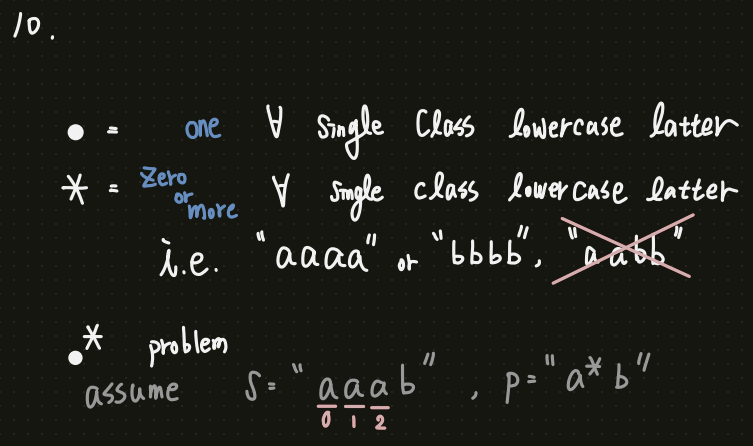 10.
• = one ∀ single class lowercase latter
* = zero or more ∀ single class lowercase latter
i.e. "aaaa" or "bbbb", "aabb"
•* problem
assume s = "aaab", p = "a*b"
0 1 2